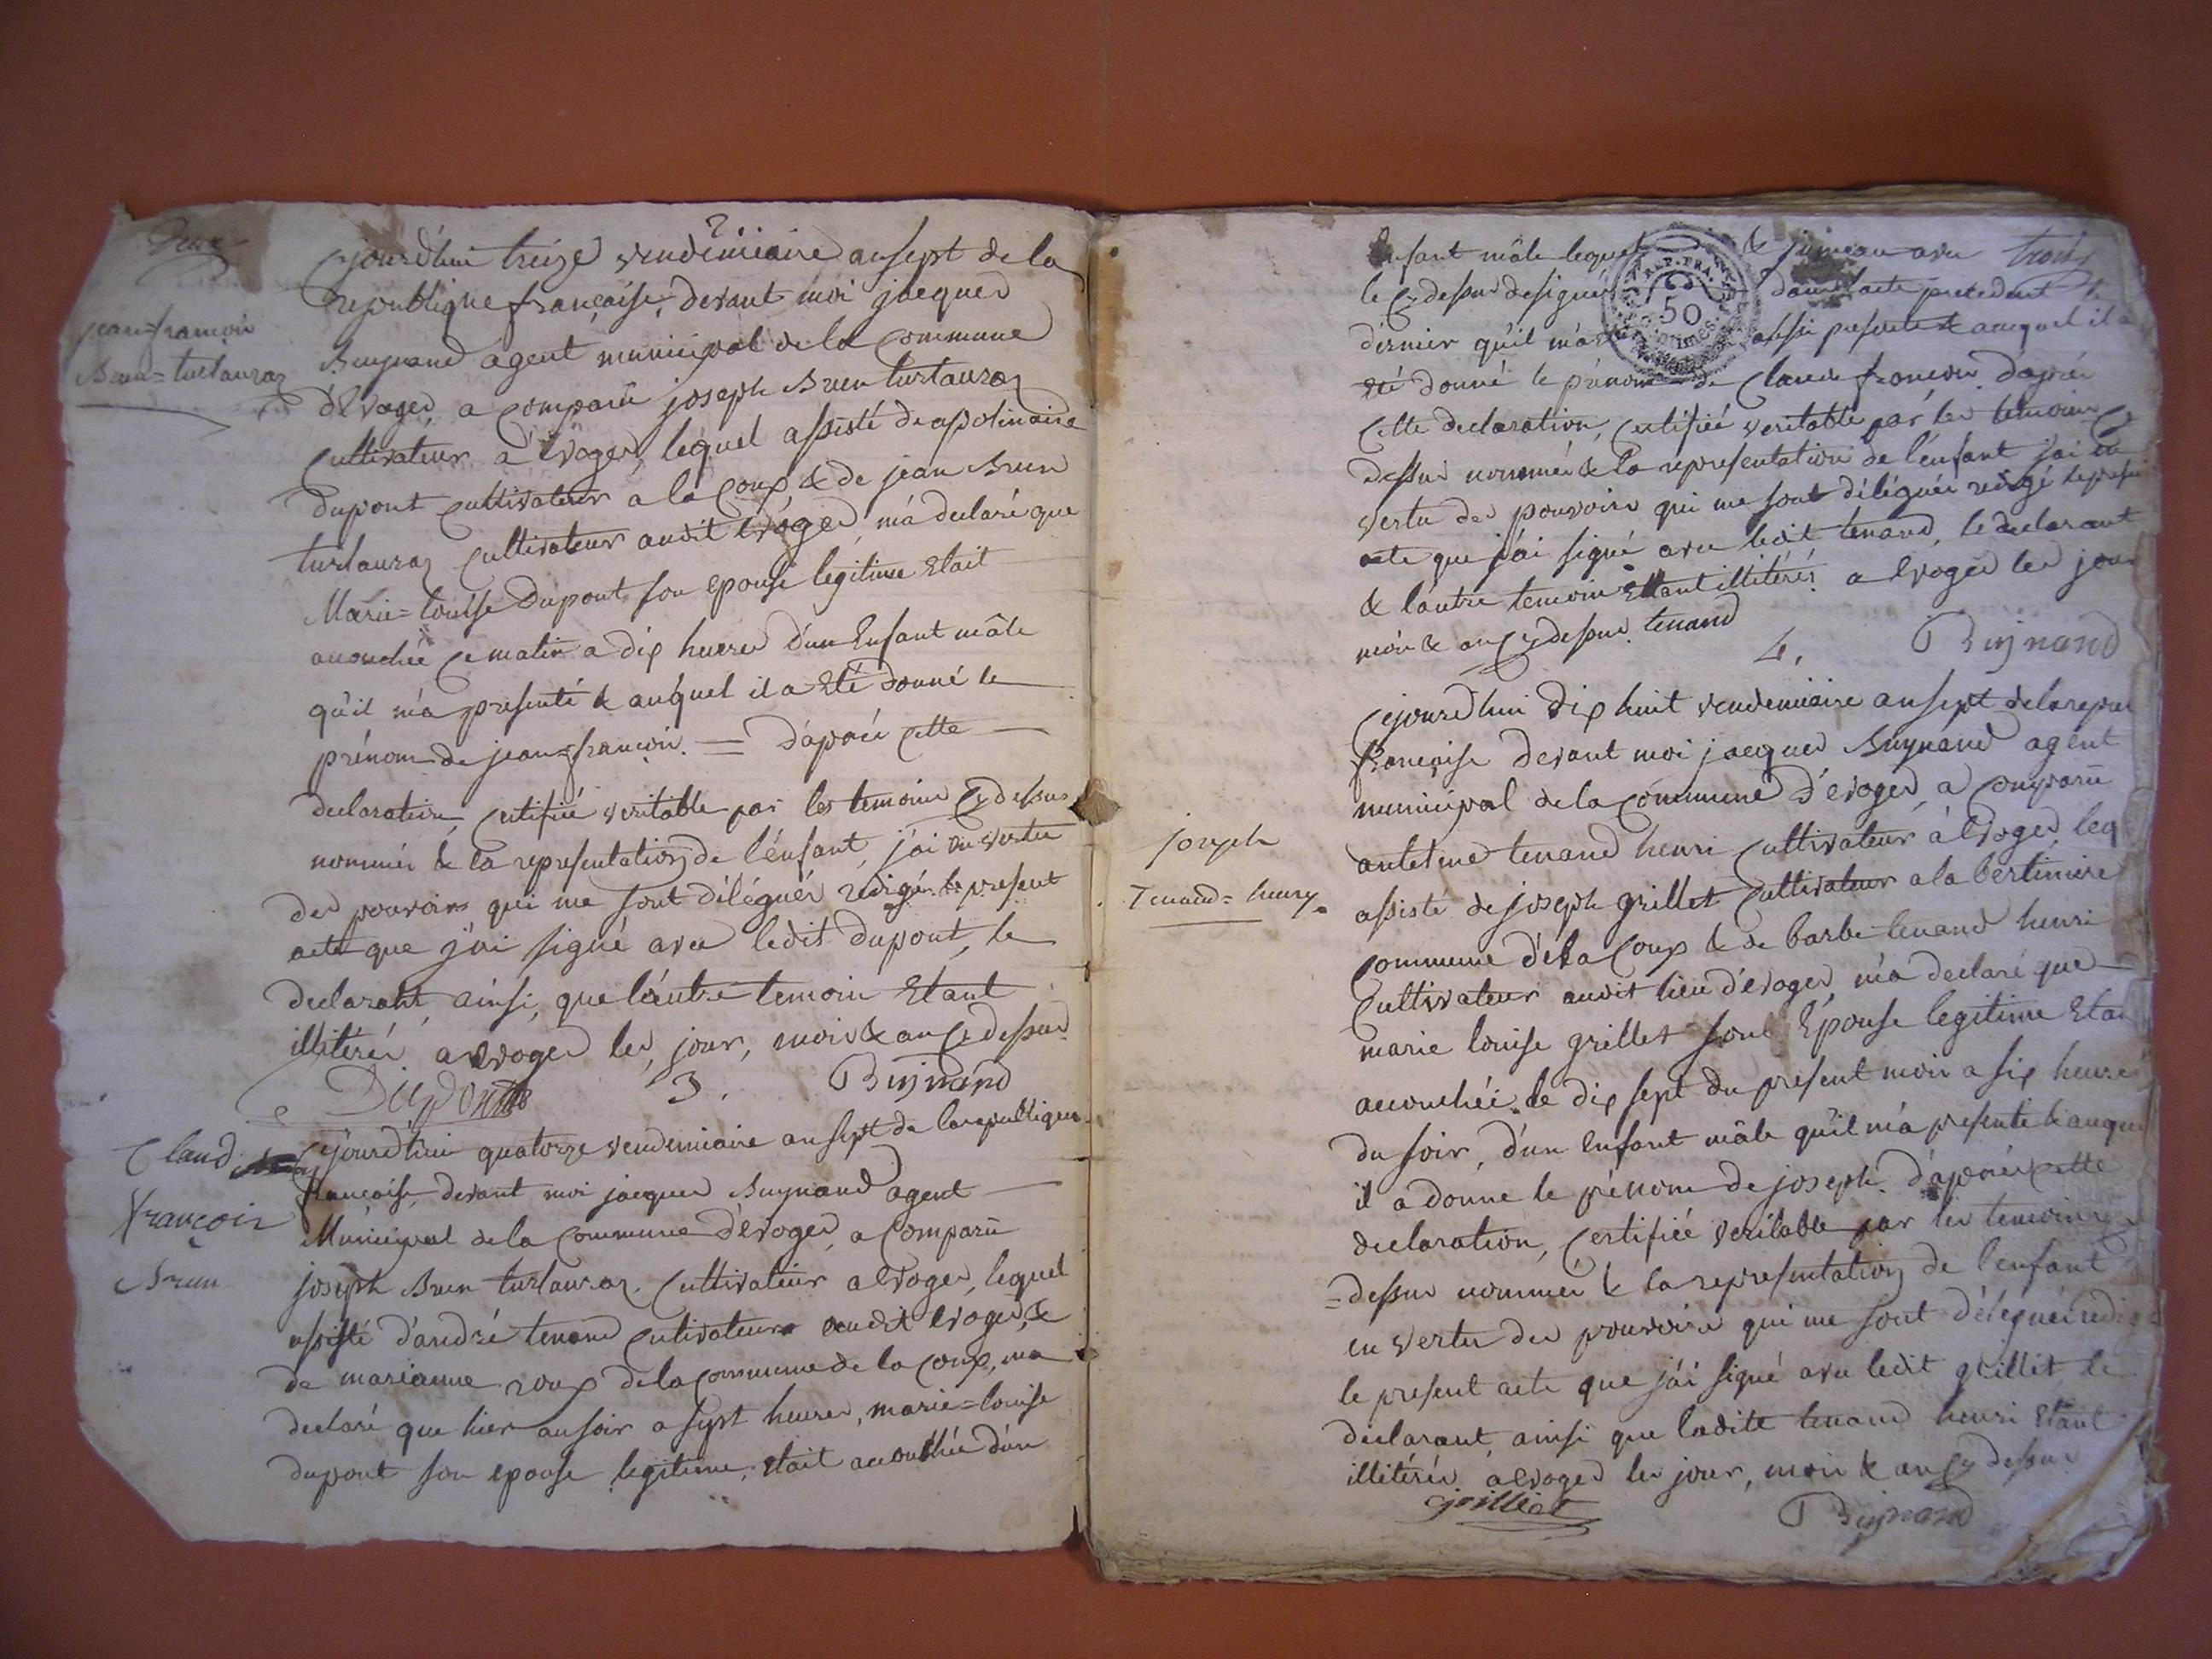 Deux
2
Cejourd'hui treize vendémiaire an sept de la
republique française, devant moi jacques
Buynand agent municipal de la Commune
d'Evoges a comparû joseph Brun turlauraz
Cultivateur à Evoges, lequel assisté de apolinaire
dupont Cultivateur a la Coux, & de jean Brun
turlauraz Cultivateur audit Evoges, m'a declaré que
Marie=louise Dupont son epouse legitime Etait
accouchée ce matin a dix heures d'un Enfant mâle
qu'il m'a presenté & auquel il a Eté donné le
prénom de jean=françois. = D'après cette
declaration, Certifiée veritable par les temoins Cy dessus
nommés & la representation de l'énfant, j'ai en vertu
des pouvoirs qui me sont délégués rédigé le present
acte que j'ai signé avec ledit dupont, le
declarant, ainsi, que l'autre temoin Etant
illitérés, a Evoges les jour, mois & an Cy dessus
Dupont
Buynand
jean=françois
Brun=turlauraz
3.
Cejourd'hui quatorze vendemiaire an sept de la republique
française, devant moi jacques Buynand agent
Municipal de la Commune d'Evoges, a Comparû
joseph Brun turlauraz, Cultivateur a Evoges, lequel
assisté d'andré tenand Cultivateur audit Evoges, &
de marianne roux de la Commune de la Coux, m'a
declaré que hier au soir a sept heures, marie=louise
dupont son epouse legitime, etait accouchée d'un
Claud
françois
Brun
trois
Enfant mâle lequel & jumeau avec
le Cy dessus designé dans l'acte precedent
dérnier qu'il m'a aussi presenté & auquel il a
été donné le prénom de Claude françois. D'après
Cette declaration, Certifiée veritable par les temoins Cy
dessus nommés & la representation de l'énfant j'ai en
vertu des pouvoirs qui me sont délégués redigé le present
acte que j'ai signé avec ledit tenand, le declarant
& l'autre temoin Etant illitérés. a Evoges les jour
mois & an Cy dessus. tenand
Buynand
4.
Cejourd'hui dix huit vendemiaire an sept de la repu
française devant moi jacques Buynand agent
municipal de la Commune d'Evoges, a Comparû
antelme tenand henri Cultivateur à Evoges, leq
assisté de joseph grillet Cultivateur a la bertiniere
Commune de la Coux & de barbe tenand henri
Cultivateur audit lieu d'Evoges, m'a declaré que
marie louise grillet son Epouse legitime Eta
accouchée le dix sept du present mois a six heures
du soir, d'un Enfant mâle qu'il m'a presenté & auque
il a donné le prénom de joseph. d'après cette
declaration, Certifiée veritable par les temoins
=dessus nommés & la representation de l'enfant
en vertu des pouvoirs qui me sont délégués redigé
le present acte que j'ai signé avec ledit grillet le
declarant, ainsi que ladite tenand henri Etant
illitérés, a Evoges les jour, mois & an Cy dessus
grillet
Buynand
joseph
Tenand=henry.
REP. FRA.
50
Centimes.